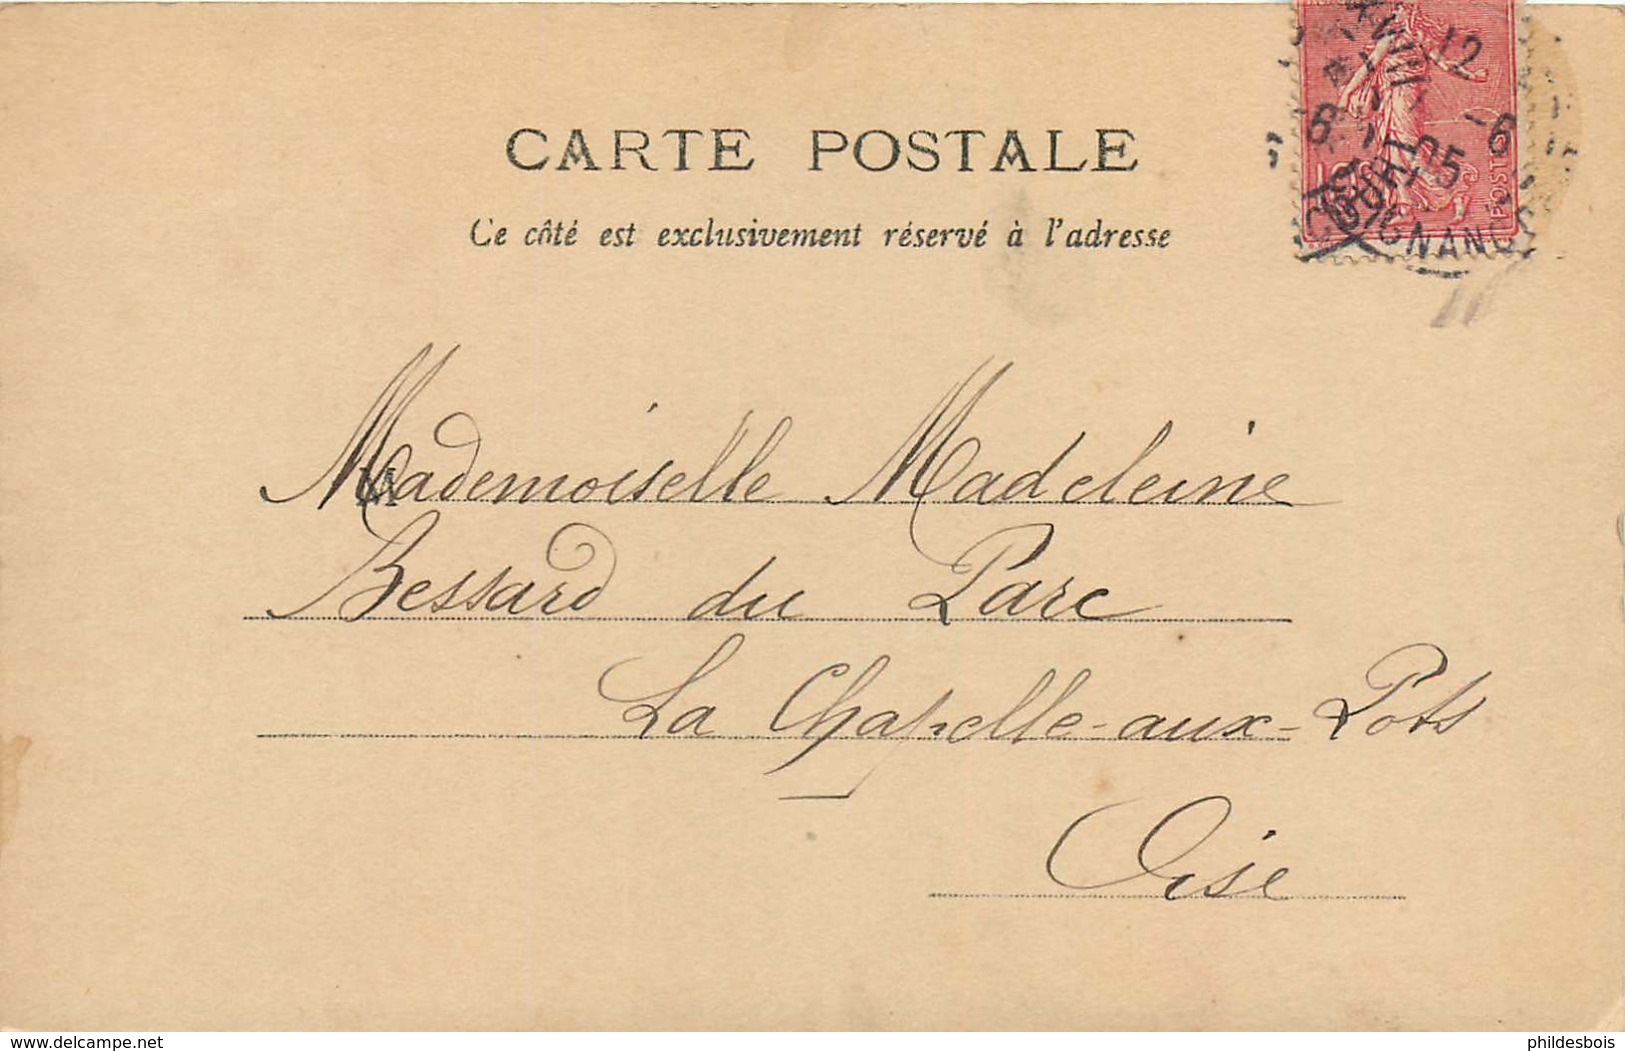 CARTE POSTALE
Ce côté est exclusivement réservé à l'adresse
12
-6
05
POSTES
Mademoiselle Madeleine
Bessard du Parc
La Chapelle-aux-Pots
Oise
delcampe.net
phildesbois